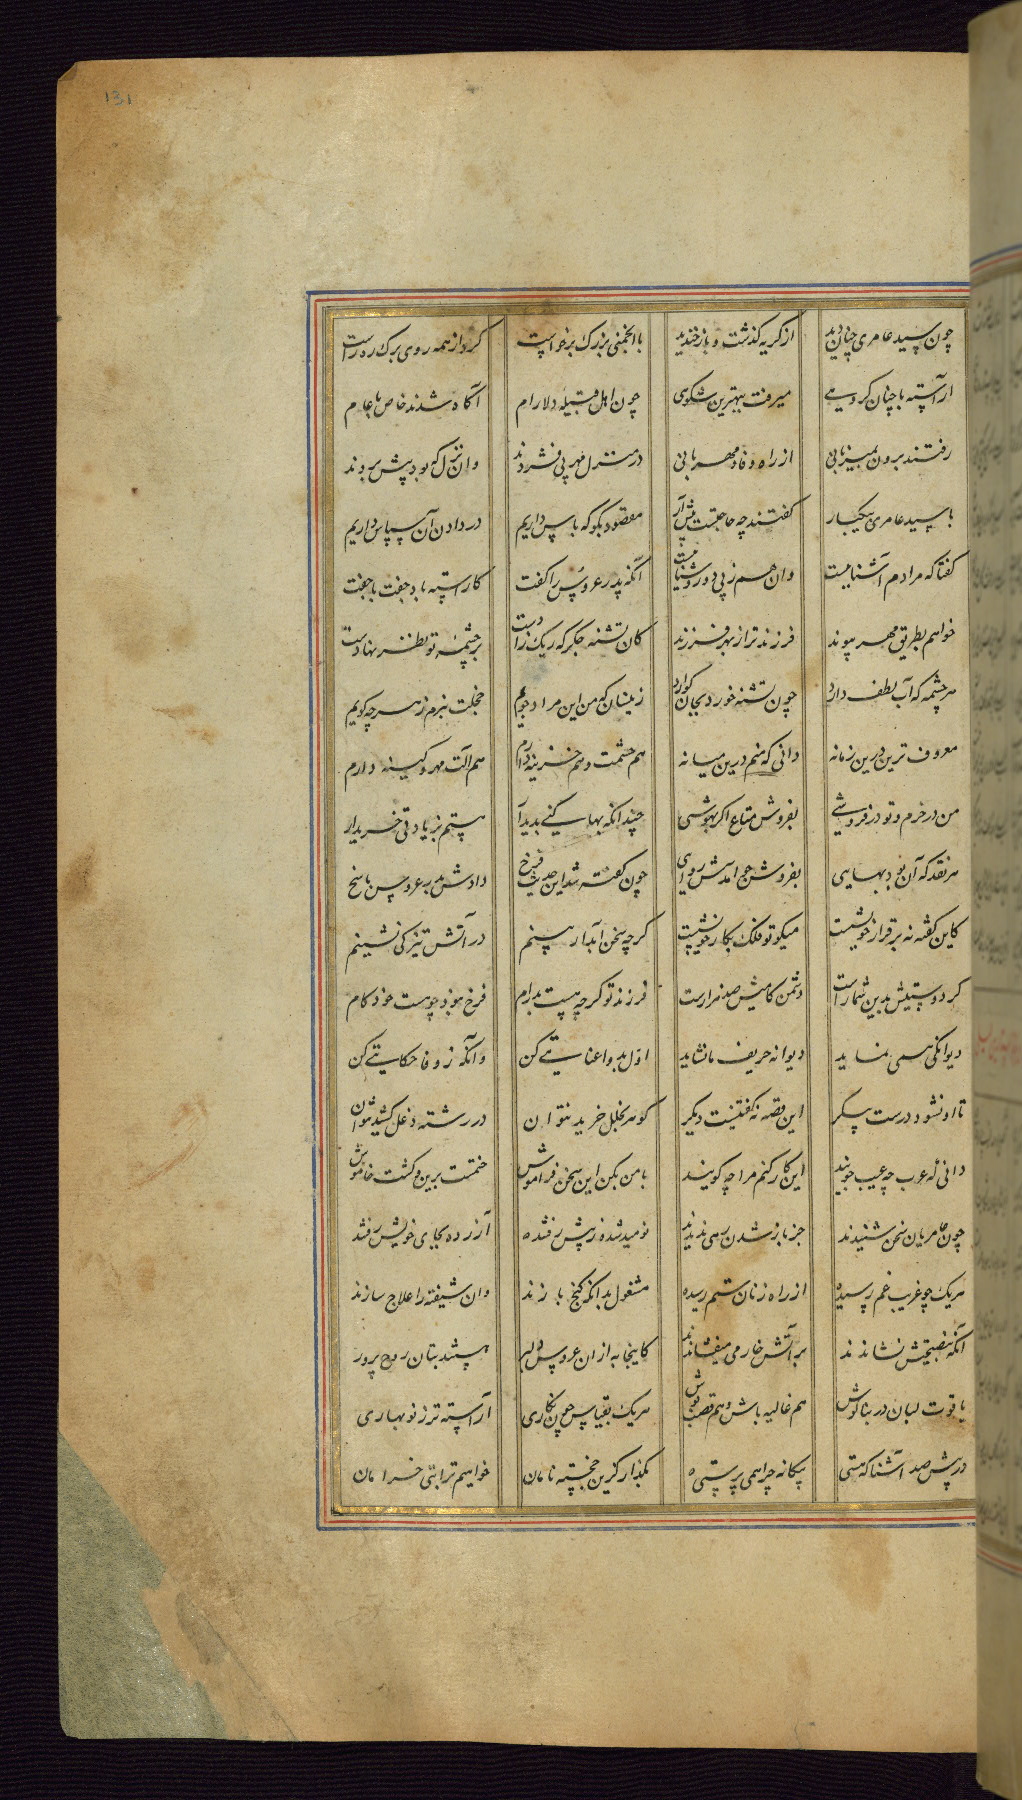 131
چون سید عامری چنان دید از گریه گذشت و باز خندید با انجمنی بزرگ برخواست کرد از همه روی برگ ره راست
آراسته با چنان گروهی میرفت بهترین شکوهی چون اهل قبیله دلارام آگاه شدند خاص با عام
رفتند برون بمیزبانی از راه وفا و مهربانی در منزل مهر پی فشردند وان نزل که بود پیش بردند
با سید عامری بیکبار گفتند چه حاجتست پیش آر مقصود بگو که پاس داریم در دادن آن سپاس داریم
گفتا که مرادم آشناییست وان هم ز پی دو روشناییست آنگه پدر عروس را گفت کاراسته باد جفت با جفت
خواهم بطریق مهر پیوند فرزند ترا ز بهر فرزند کان تشنه جگر که ریگ زادست بر چشمه تو نظر نهادست
هر چشمه که آب لطف دارد چون تشنه خورد بجان گوارد زینسان که من این مراد جویم خجلت نبرم ز هر چه گویم
معروف ترین درین زمانه دانی که منم درین میانه هم حشمت و هم خزینه دارم هم آلت مهر و کینه دارم
من در خرم و تو در فروشی بفروش متاع اگر بهوشی چندانکه بها کنی پدیدار هستم بزیادتی خریدار
هر نقد که آن بود بهایی بفروش چو آمدش روایی چون گفته شد این حدیث فرخ دادش پدر عروس پاسخ
کاین گفته نه برقرار خویشست میگو تو فلک بکار خویشست گرچه سخن آبدار بینم در آتش تیز کی نشینم
گر دوستیش بدین شمارست دشمن کامیش صد هزارست فرزند تو گرچه هست بدرام فرخ نبود چو هست خودکام
دیوانگی همی نماید دیوانه حریف ما نشاید اول بدوا عنایتی کن وانگه ز وفا حکایتی کن
تا او نشود درست پیکر این قصه نه گفتنیست دیگر گوهر بخلل خرید نتوان در رشته دغل کشید نتوان
دانی که عرب چه عیب جویند این کار کنم مرا چه گویند با من بکن این سخن فراموش ختمست برین و گشت خاموش
چون عامریان سخن شنیدند جز باز شدن رهی ندیدند نومید شده ز پیش رفتند آزرده بجای خویش رفتند
هر یک چو غریب غم رسیده از راه زنان ستم رسیده مشغول بدانکه گنج بازند وان شیفته را علاج سازند
آنگه بنصیحتش نشاندند بر آتش خار می فشاندند کاینجا به از آن عروس دلبر هستند بتان روح پرور
یاقوت لبان در بناگوش هم غالیه باش و هم قصب پوش هر یک بقیاس چون نگاری آراسته تر ز نوبهاری
در پیش صد آشنا که هستی بیگانه چرا همی پرستی بگذار کزین خجسته نامان خواهیم ترا بتی خرامان